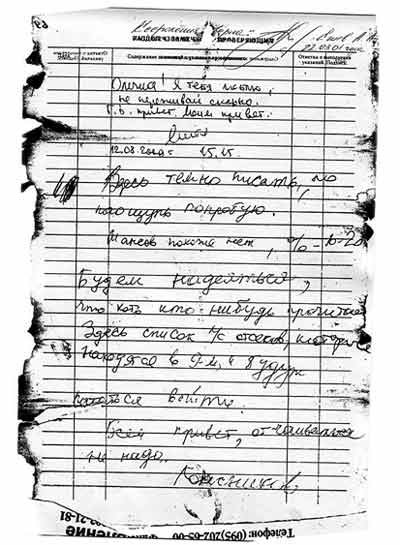 верна
Содержание
Отметка о выполнении
указаний, подпись
Олечка! Я тебя люблю,
не переживай сильно.
Г.В. привет. Моим привет.
12.08.2000г 15.15.
Здесь темно писать, но
наощупь попробую.
Шансов похоже нет, %-10-20
Будем надеяться,
что хоть кто-нибудь прочитает
Здесь список л/с отсеков, которые
находятся в 9-м, и будут
пытаться выйти.
Всем привет, отчаиваться
не надо.
Колесников.
Телефон: (095)202-65-00